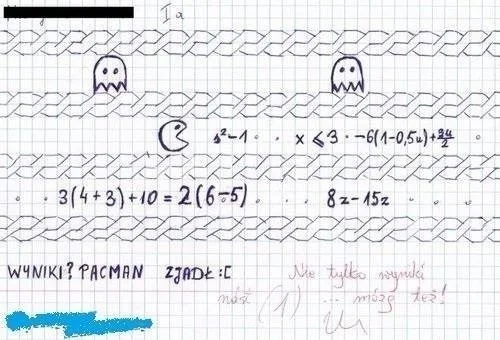 Ia
s²-1 . . x ⩽ 3 · -6(1-0,5u)+ 2u/2 .
. . 3(4+3)+10 = 2(6-5) . . . 8z-15z . . .
WYNIKI? PACMAN ZJADŁ :[
Nie tylko wyniki
(1) ... mózg też!